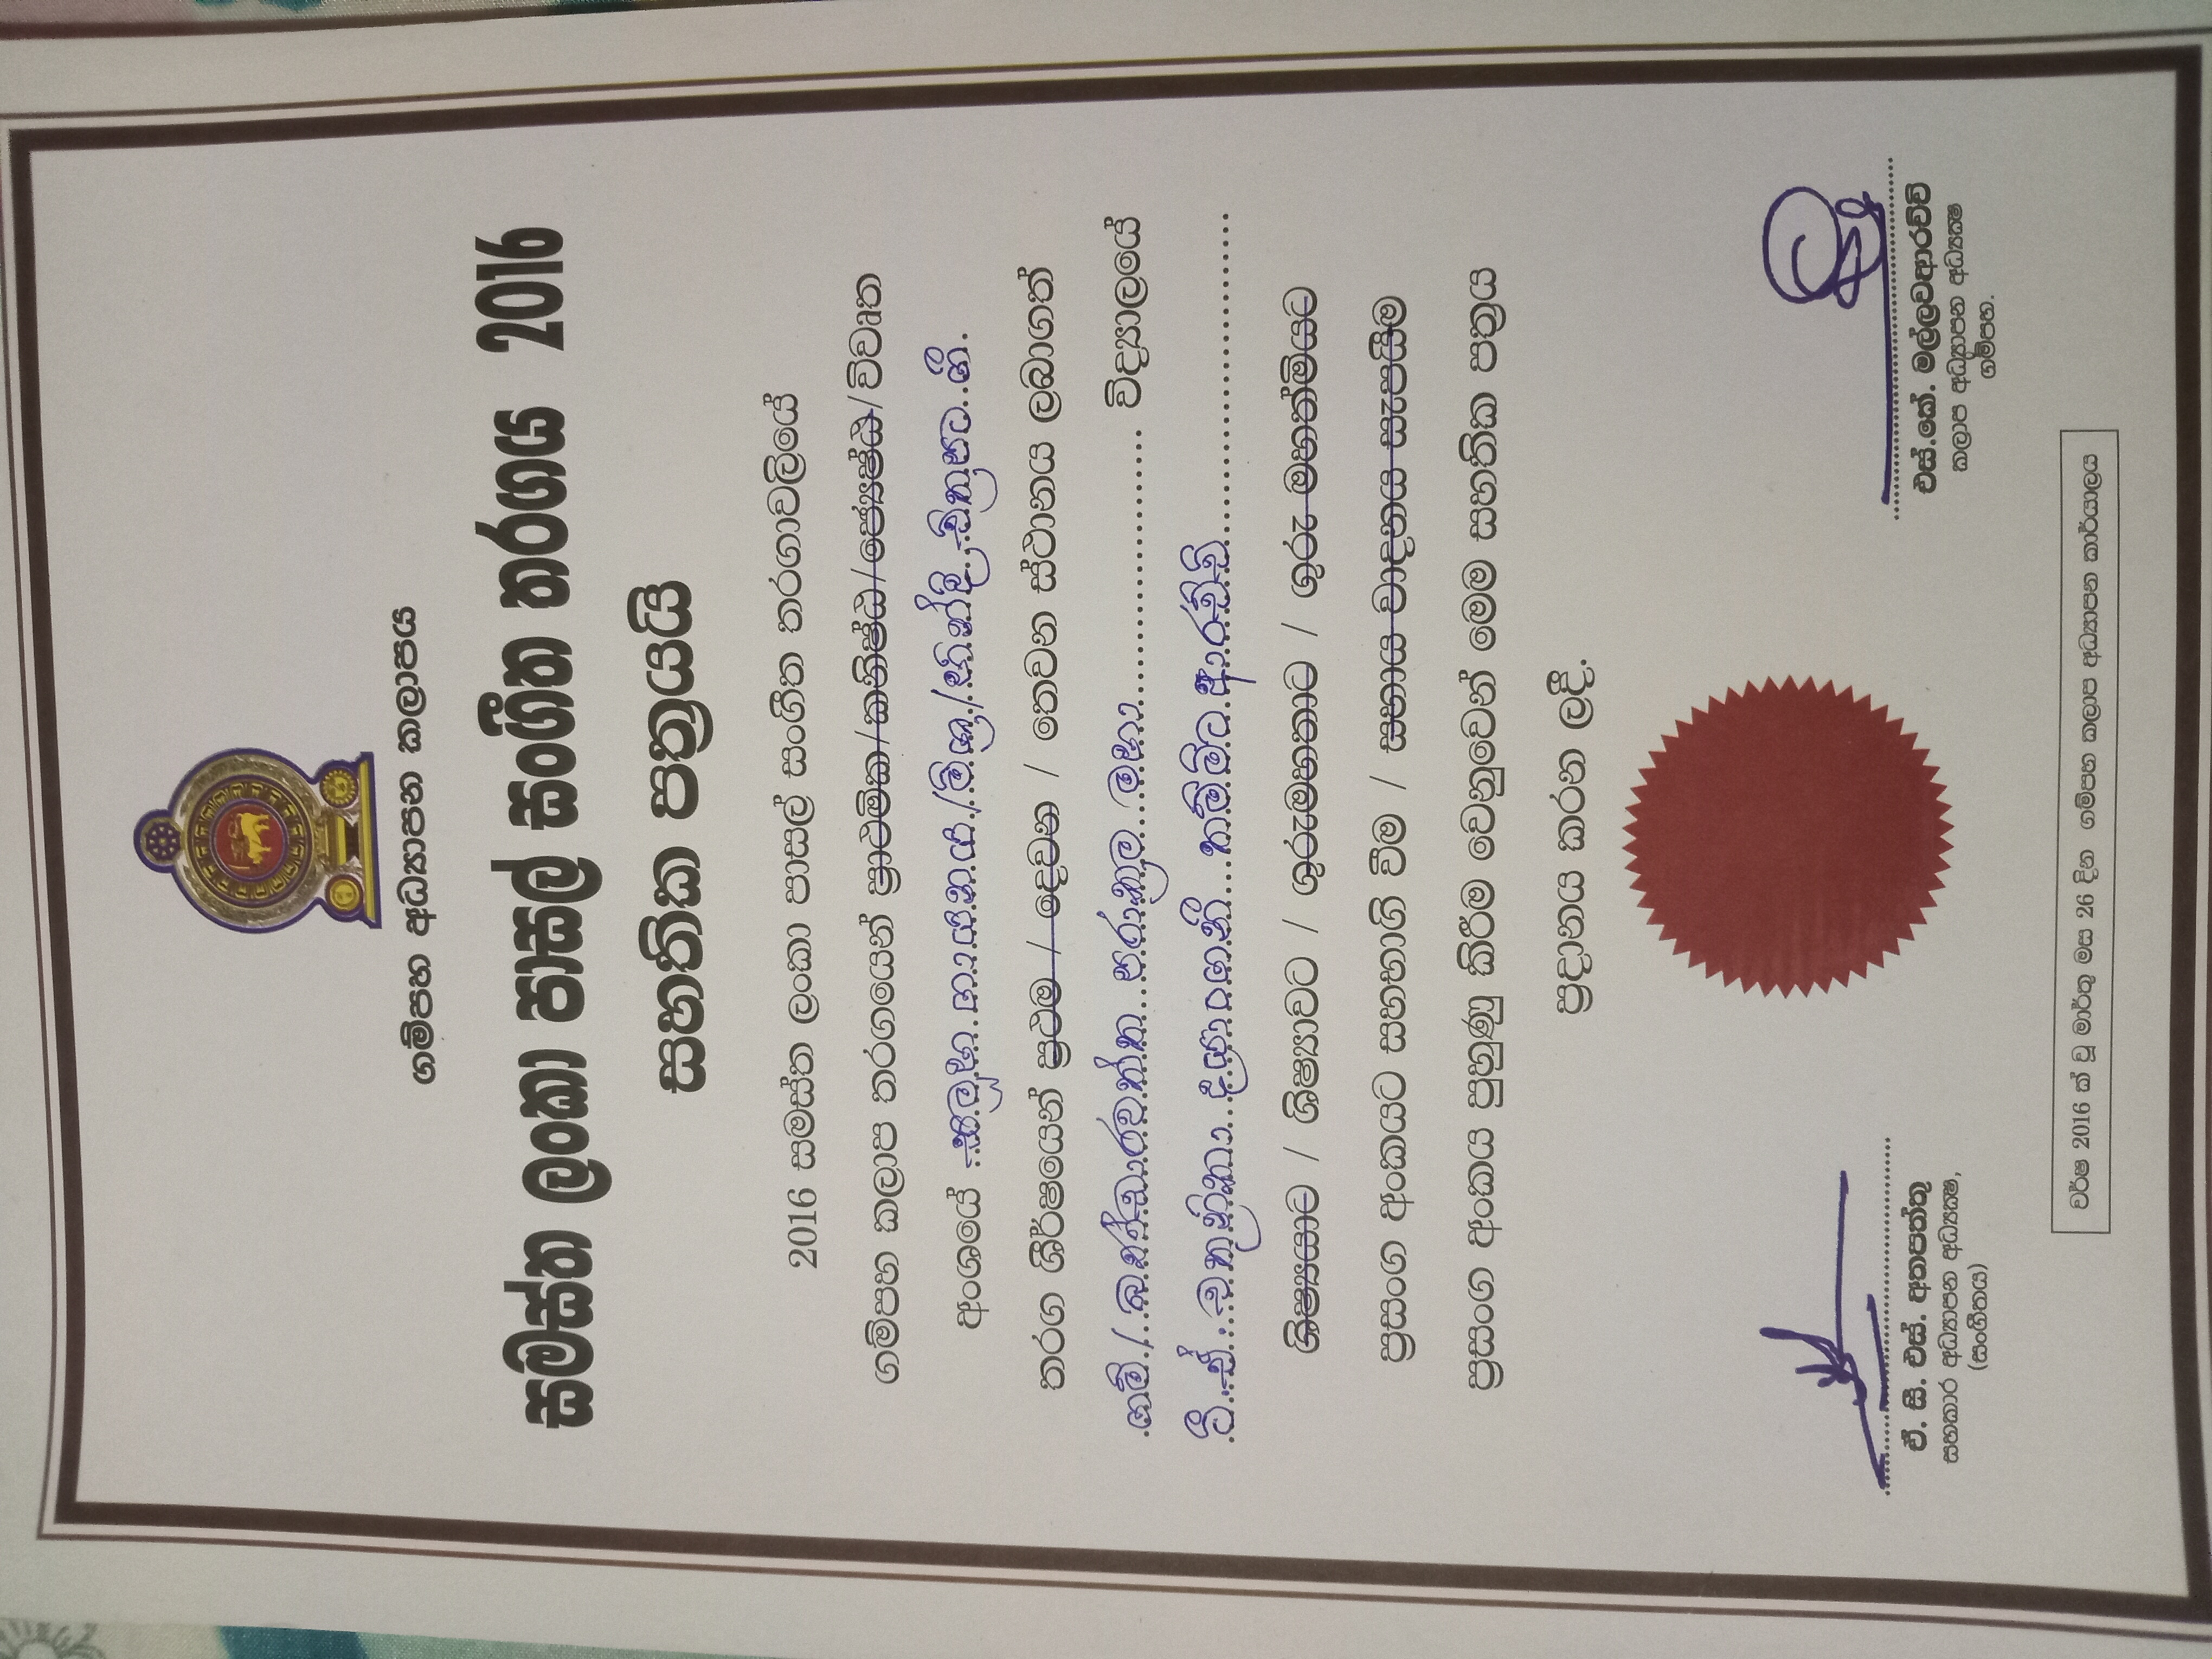 ගම්පහ අධ්‍යාපන කලාපය
සමස්ත ලංකා පාසල් සංගීත තරගය 2016
සහතික පත්‍රයයි
2016 සමස්ත ලංකා පාසල් සංගීත තරගාවලියේ
ගම්පහ කලාප තරගයෙන් ප්‍රාථමික/කනිෂ්ඨ/ජ්‍යෙෂ්ඨ/විවෘත
අංශයේ සමූහ ගායනය/මිශ්‍ර/හින්දි චිත්‍රපට ගී
තරග ශීර්ෂයෙන් ප්‍රථම / දෙවන / තෙවන ස්ථානය ලබාගත්
ගම්/ බණ්ඩාරවත්ත පරාක්‍රම මහා විද්‍යාලයේ
ටී. ඒ. චතුනිකා දයාංගනී කම්මිටආරච්චි
ශිෂ්‍යයාට / ශිෂ්‍යාවට / ගුරුමහතාට / ගුරු මහත්මියට
ප්‍රසංග අංකයට සහභාගි වීම / සහාය වාදනය සැපයීම
ප්‍රසංග අංකය පුහුණු කිරීම වෙනුවෙන් මෙම සහතික පත්‍රය
ප්‍රදානය කරන ලදී.
ඒ. සී. එස්. අතපත්තු
සහකාර අධ්‍යාපන අධ්‍යක්ෂ,
(සංගීතය)
එස්.කේ. මල්ලවආරච්චි
කලාප අධ්‍යාපන අධ්‍යක්ෂ
ගම්පහ.
වර්ෂ 2016 ක් වූ මාර්තු මස 26 දින ගම්පහ කලාප අධ්‍යාපන කාර්යාලය